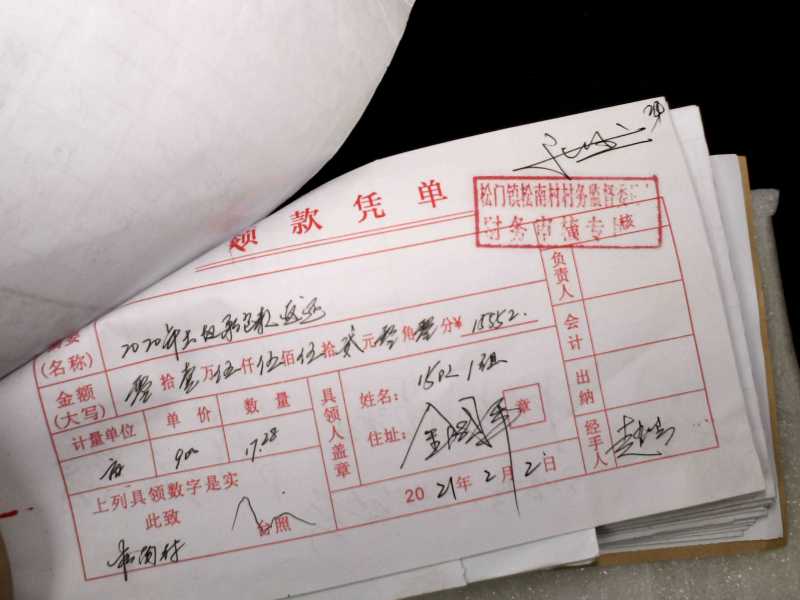 领款凭单
松门镇松南村村务监督委
财务审核专
核
2020年土地承包款返还
(名称)
金额
(大写)
零拾壹万伍仟伍佰伍拾贰元零角零分¥ 15552.
计量单位 单价 数量
亩 900 17.28
具领人盖章
姓名: 1502 1组
住址:
章
负责人
会计
出纳
经手人
上列具领数字是实
此致
台照
松南村
2021年2月2日